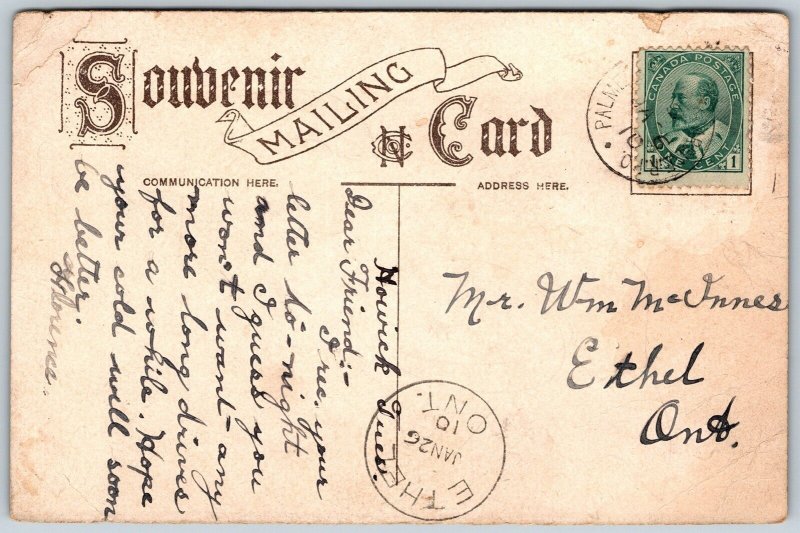 Souvenir
MAILING
Card
COMMUNICATION HERE.
ADDRESS HERE.
CANADA POSTAGE
ONE CENT
1
PALM
10
ONT
Howick Tues.
Dear Friend:-
I rec. your
letter to-night
and I guess you
won't want any
more long drives
for a while. Hope
your cold will soon
be better.
Florence.
Mr. Wm McInnes
Ethel
Ont.
ETHEL
JAN 26
10
ONT.